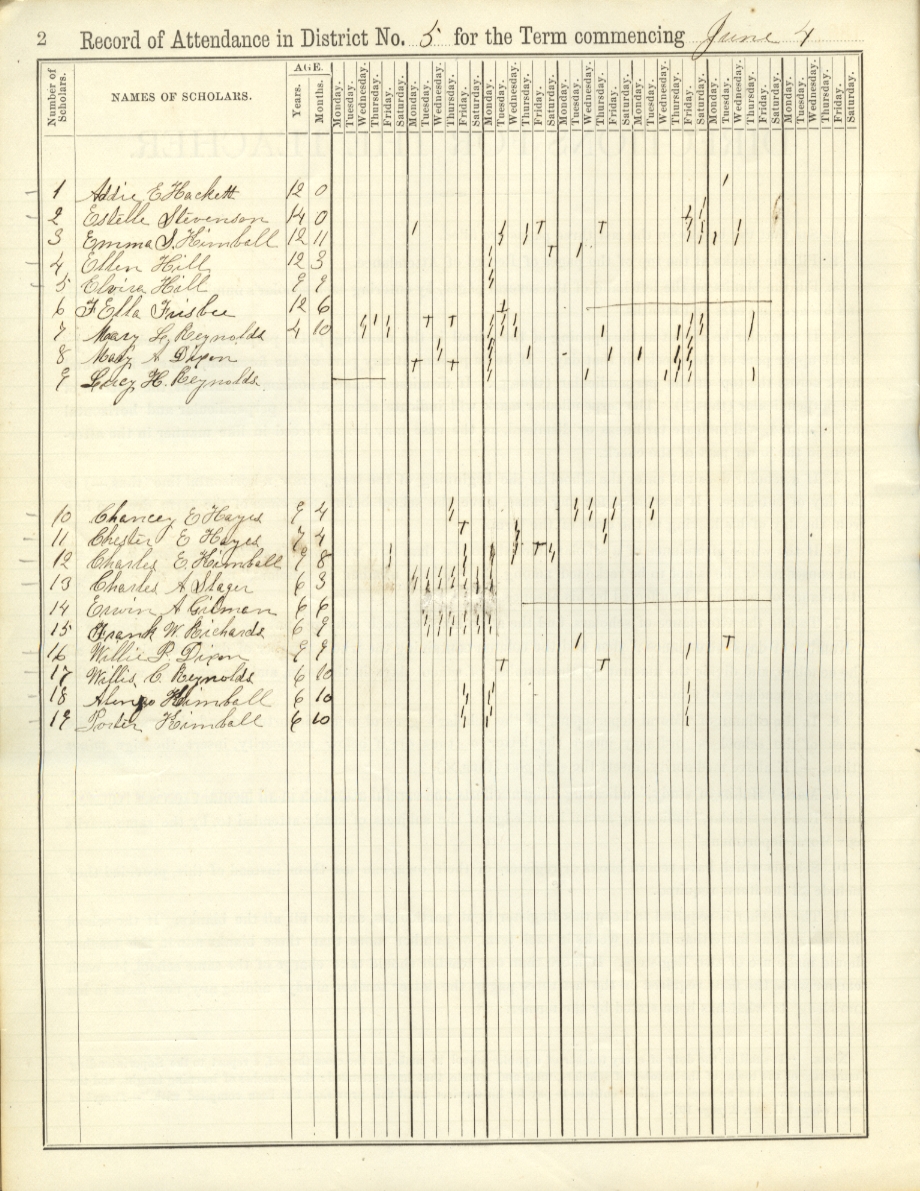 2 Record of Attendance in District No. 5 for the Term commencing June 4
Number of Scholars. NAMES OF SCHOLARS. AGE. Years. Months. Monday. Tuesday. Wednesday. Thursday. Friday. Saturday. Monday. Tuesday. Wednesday. Thursday. Friday. Saturday. Monday. Tuesday. Wednesday. Thursday. Friday. Saturday. Monday. Tuesday. Wednesday. Thursday. Friday. Saturday. Monday. Tuesday. Wednesday. Thursday. Friday. Saturday. Monday. Tuesday. Wednesday. Thursday. Friday. Saturday. Monday. Tuesday. Wednesday. Thursday. Friday. Saturday.
1 Addie E Hackett 12 0
2 Estelle Stevenson 14 0
3 Emma S. Kimball 12 11
4 Ellen Hill 12 3
5 Elvira Hill 9 9
6 F Ella Frisbee 12 6
7 Mary L. Reynolds 4 10
8 Mary A Dixon
9 Lucy H. Reynolds
10 Chancey E Hayes 9 4
11 Chester E Hayes 7 4
12 Charles E. Kimball 9 8
13 Charles A Stager 6 3
14 Erwin A Gilman 6 6
15 Frank W. Richards 6 9
16 Willie P. Dixon 9 9
17 Willis C. Reynolds 6 10
18 Alonzo Kimball 6 10
19 Porter Kimball 6 10